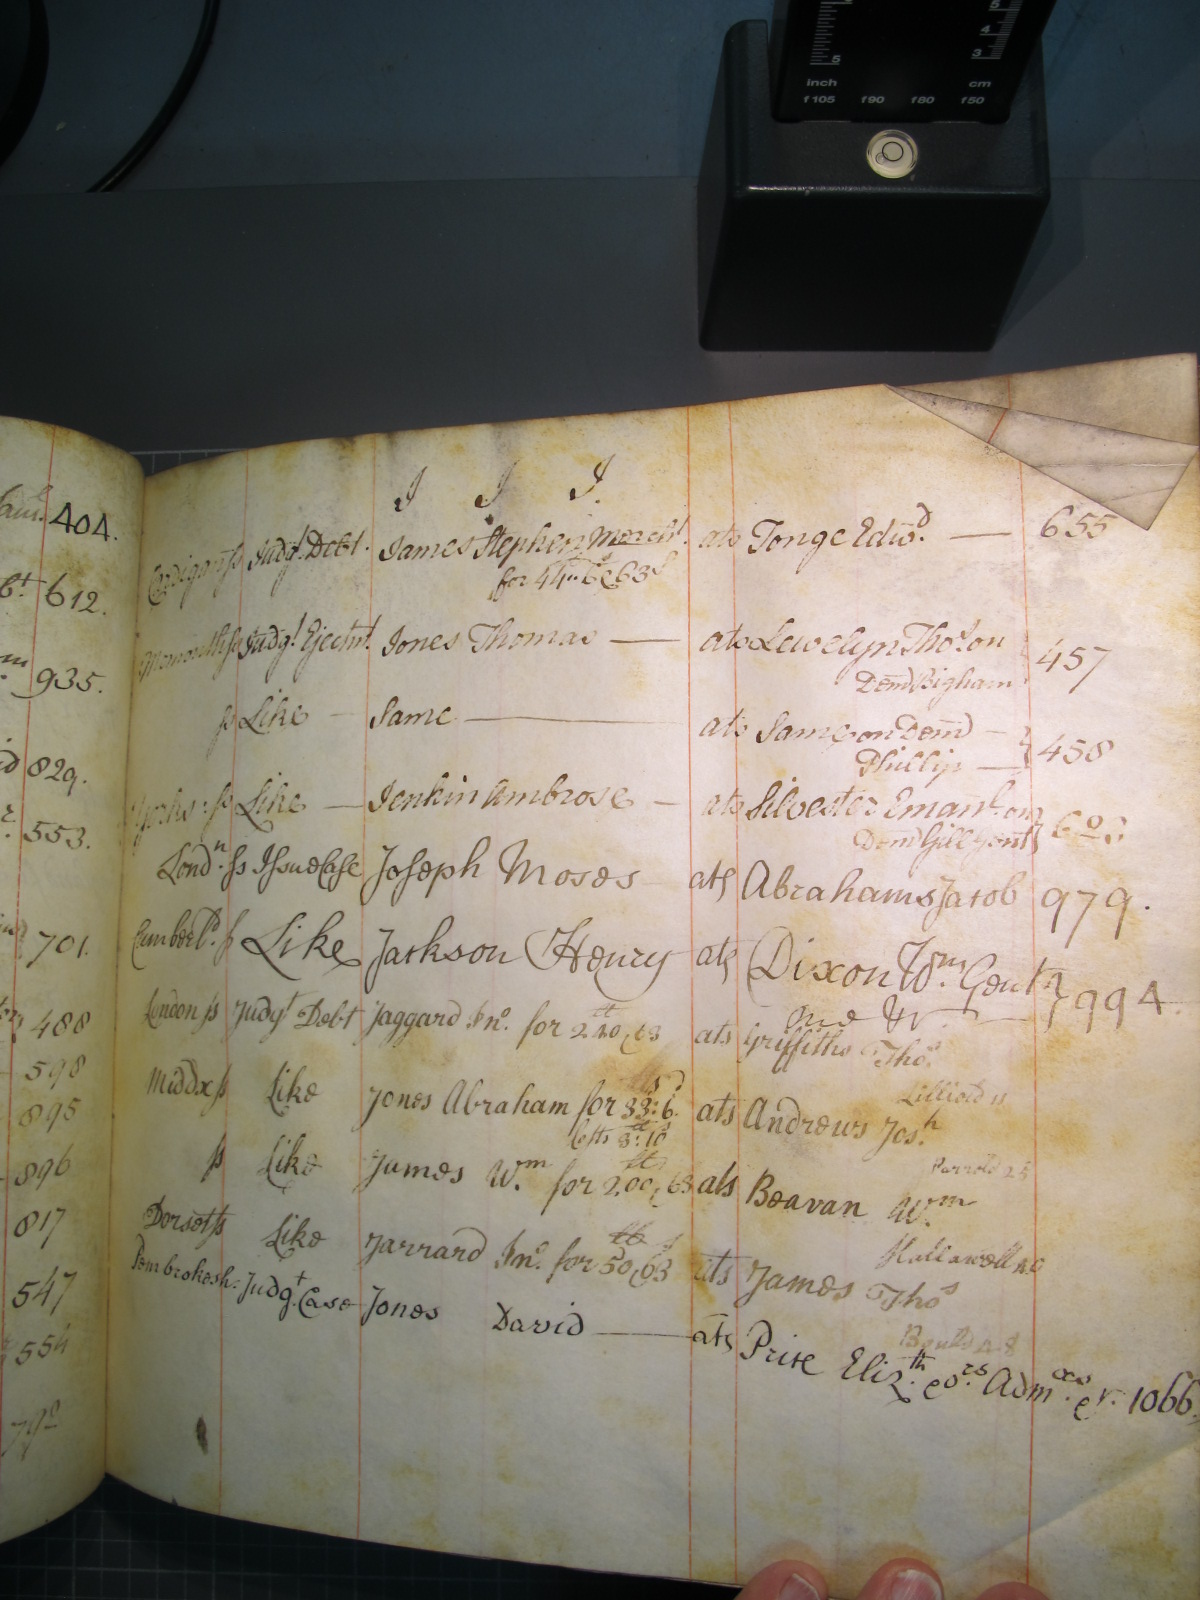 5
4
3
5
inch cm
f105 f90 f80 f50
J J J.
404.
612.
935.
829.
553.
701.
488
598
895
896
817
547
554
792
Cardigan ss Judgt. Debt. James Stephen Mercht. ats Tonge Edwd. — 655
for 44 63s
Monmouth ss Judgt. Ejectmt. Jones Thomas — ats Lewelyn Thos. on 457
Demd Bigham
ss Like — Same — ats Same on Demd — 458
Phillip —
Yorks: ss Like — Jenkin Ambrose — ats Silvester Emanl. on
Demd Gill Gent
Londn. ss Issue Case Joseph Moses ats Abrahams Jacob 979.
Cumberld. ss Like Jackson Henry ats Dixon Wm. Gent 994.
London ss Judgt Debt Jaggard Jno. for 240, 63 ats Griffiths Thos.
Lilliord 11
Middx ss Like Jones Abraham for 33: 6. ats Andrews Josh.
Costs 8: 10
ss Like James Wm. for 200, 63 ats Beavan Wm.
Dorset ss Like Jarrard Jno. for 50, 63 ats James Thos
Pembrokesh: Judgt. Case Jones David — ats Prise Elizth. Admx 1066.